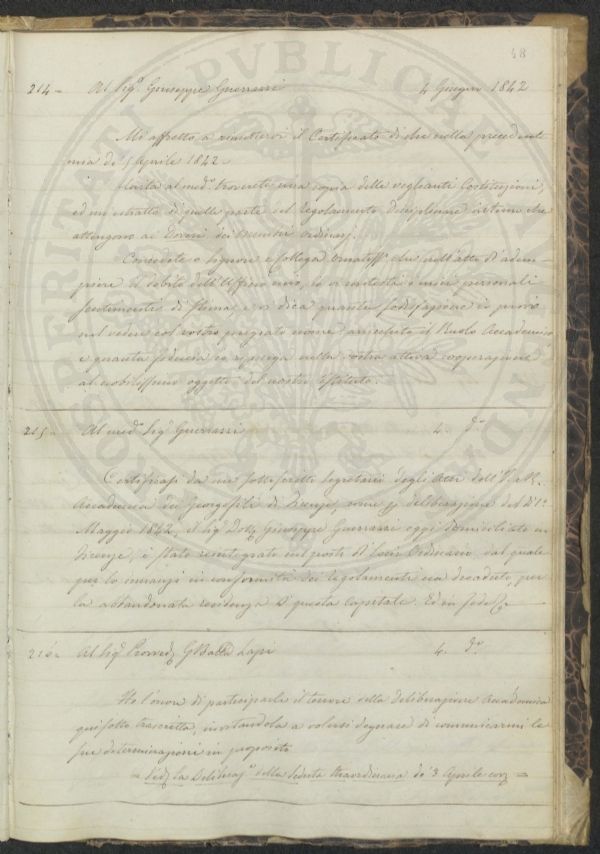 48
214 = Al Sig.r Giuseppe Guerrazzi 4 Giugno 1842
Mi affretto a rimettervi il Certificato di che nella precedente
mia de' 5 Aprile 1842 =
Unita al med.o troverete una copia delle veglianti Costituzioni,
ed un estratto di quella parte del Regolamento Disciplinare interno che
attengono ai Doveri dei Membri ordinarj.
Concedete o Signore e Collega che nell'atto di adem=
piere il debito dell'Uffizio mio, io vi i miei personali
sentimenti di stima, e vi dica quanta sodisfazione io provo
nel vedere col vostro pregiato nome il Ruolo Accademico
e quanta fiducia io nella vostra attiva cooperazione
al nobilissimo oggetto del nostro Istituto.
215 = Al med.o Sig.r Guerrazzi 4. d.o
Certificasi da me sottoscritto Segretario degli Atti dell'I. e R.
Accademia dei Georgofili di Firenze, come deliberazione del dì 1.o
Maggio 1842, il Sig. Dott. Giuseppe Guerrazzi oggi domiciliato in
Firenze, è stato reintegrato nel posto di Socio Ordinario, dal quale
per lo innanzi in conformità dei regolamenti era decaduto, per
la abbandonata residenza di questa Capitale. Ed in fede &c
216 = Al Sig.r G. Batta Lapi 4. d.o
Ho l'onore di parteciparle il tenore della deliberazione Accademica
quì sotto trascritta, invitandola a volersi degnare di comunicarmi le
sue determinazioni in proposito
= Ved. la Deliberaz.e della Seduta straordinaria de' 3 Aprile corr. =